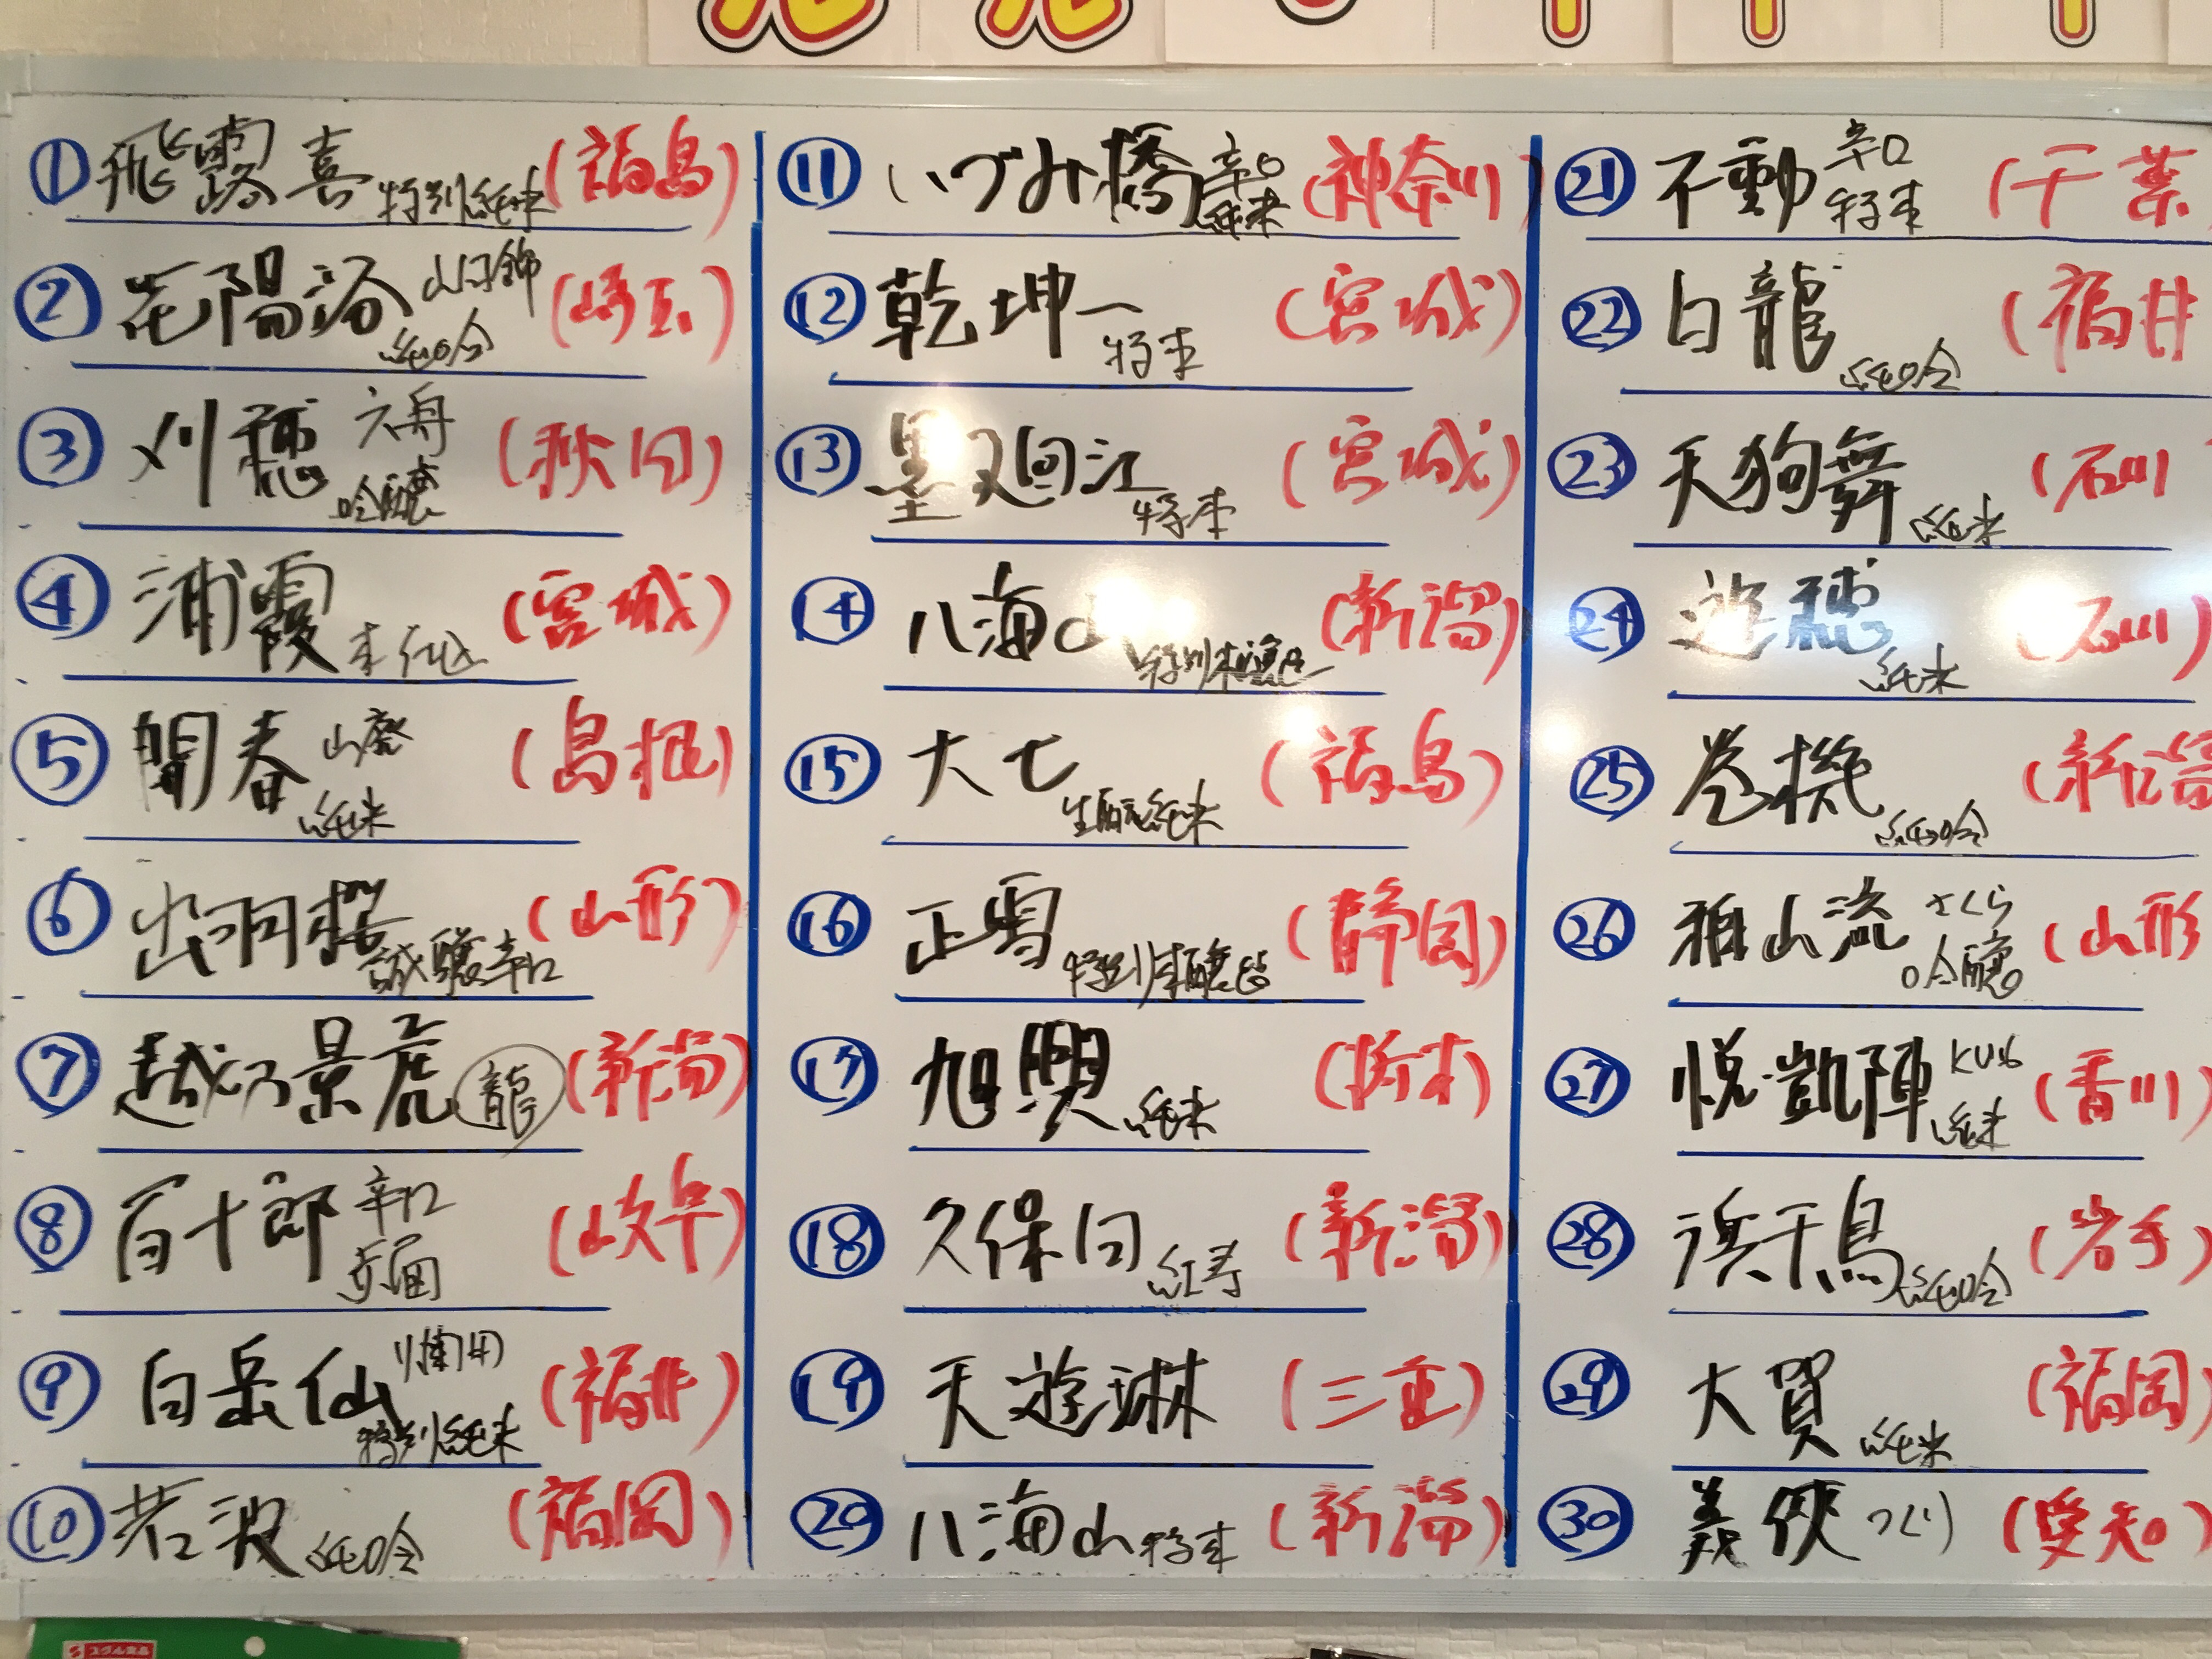 ① 飛露喜 特別純米 (福島)
② 花陽浴 山田錦 純吟 (埼玉)
③ 刈穂 六舟 吟醸 (秋田)
④ 浦霞 本仕込 (宮城)
⑤ 開春 山廃 純米 (島根)
⑥ 出羽桜 誠醸辛口 (山形)
⑦ 越乃景虎 龍 (新潟)
⑧ 百十郎 辛口 赤面 (岐阜)
⑨ 白岳仙 燗用 特別純米 (福井)
⑩ 若波 純吟 (福岡)
⑪ いづみ橋 辛口 純米 (神奈川)
⑫ 乾坤一 特本 (宮城)
⑬ 墨廼江 特本 (宮城)
⑭ 八海山 特別本醸造 (新潟)
⑮ 大七 生酛純米 (福島)
⑯ 正雪 特別本醸造 (静岡)
⑰ 旭興 純米 (栃木)
⑱ 久保田 紅寿 (新潟)
⑲ 天遊琳 (三重)
⑳ 八海山 特本 (新潟)
㉑ 不動 辛口 特本 (千葉
㉒ 白龍 純吟 (福井
㉓ 天狗舞 純米 (石川
㉔ 遊穂 純米 (石川)
㉕ 巻機 純吟 (新潟
㉖ 雅山流 さくら 吟醸 (山形
㉗ 悦凱陣 KU16 純米 (香川)
㉘ 浜千鳥 純吟 (岩手)
㉙ 大賀 純米 (福岡)
㉚ 義侠 つくり (愛知)